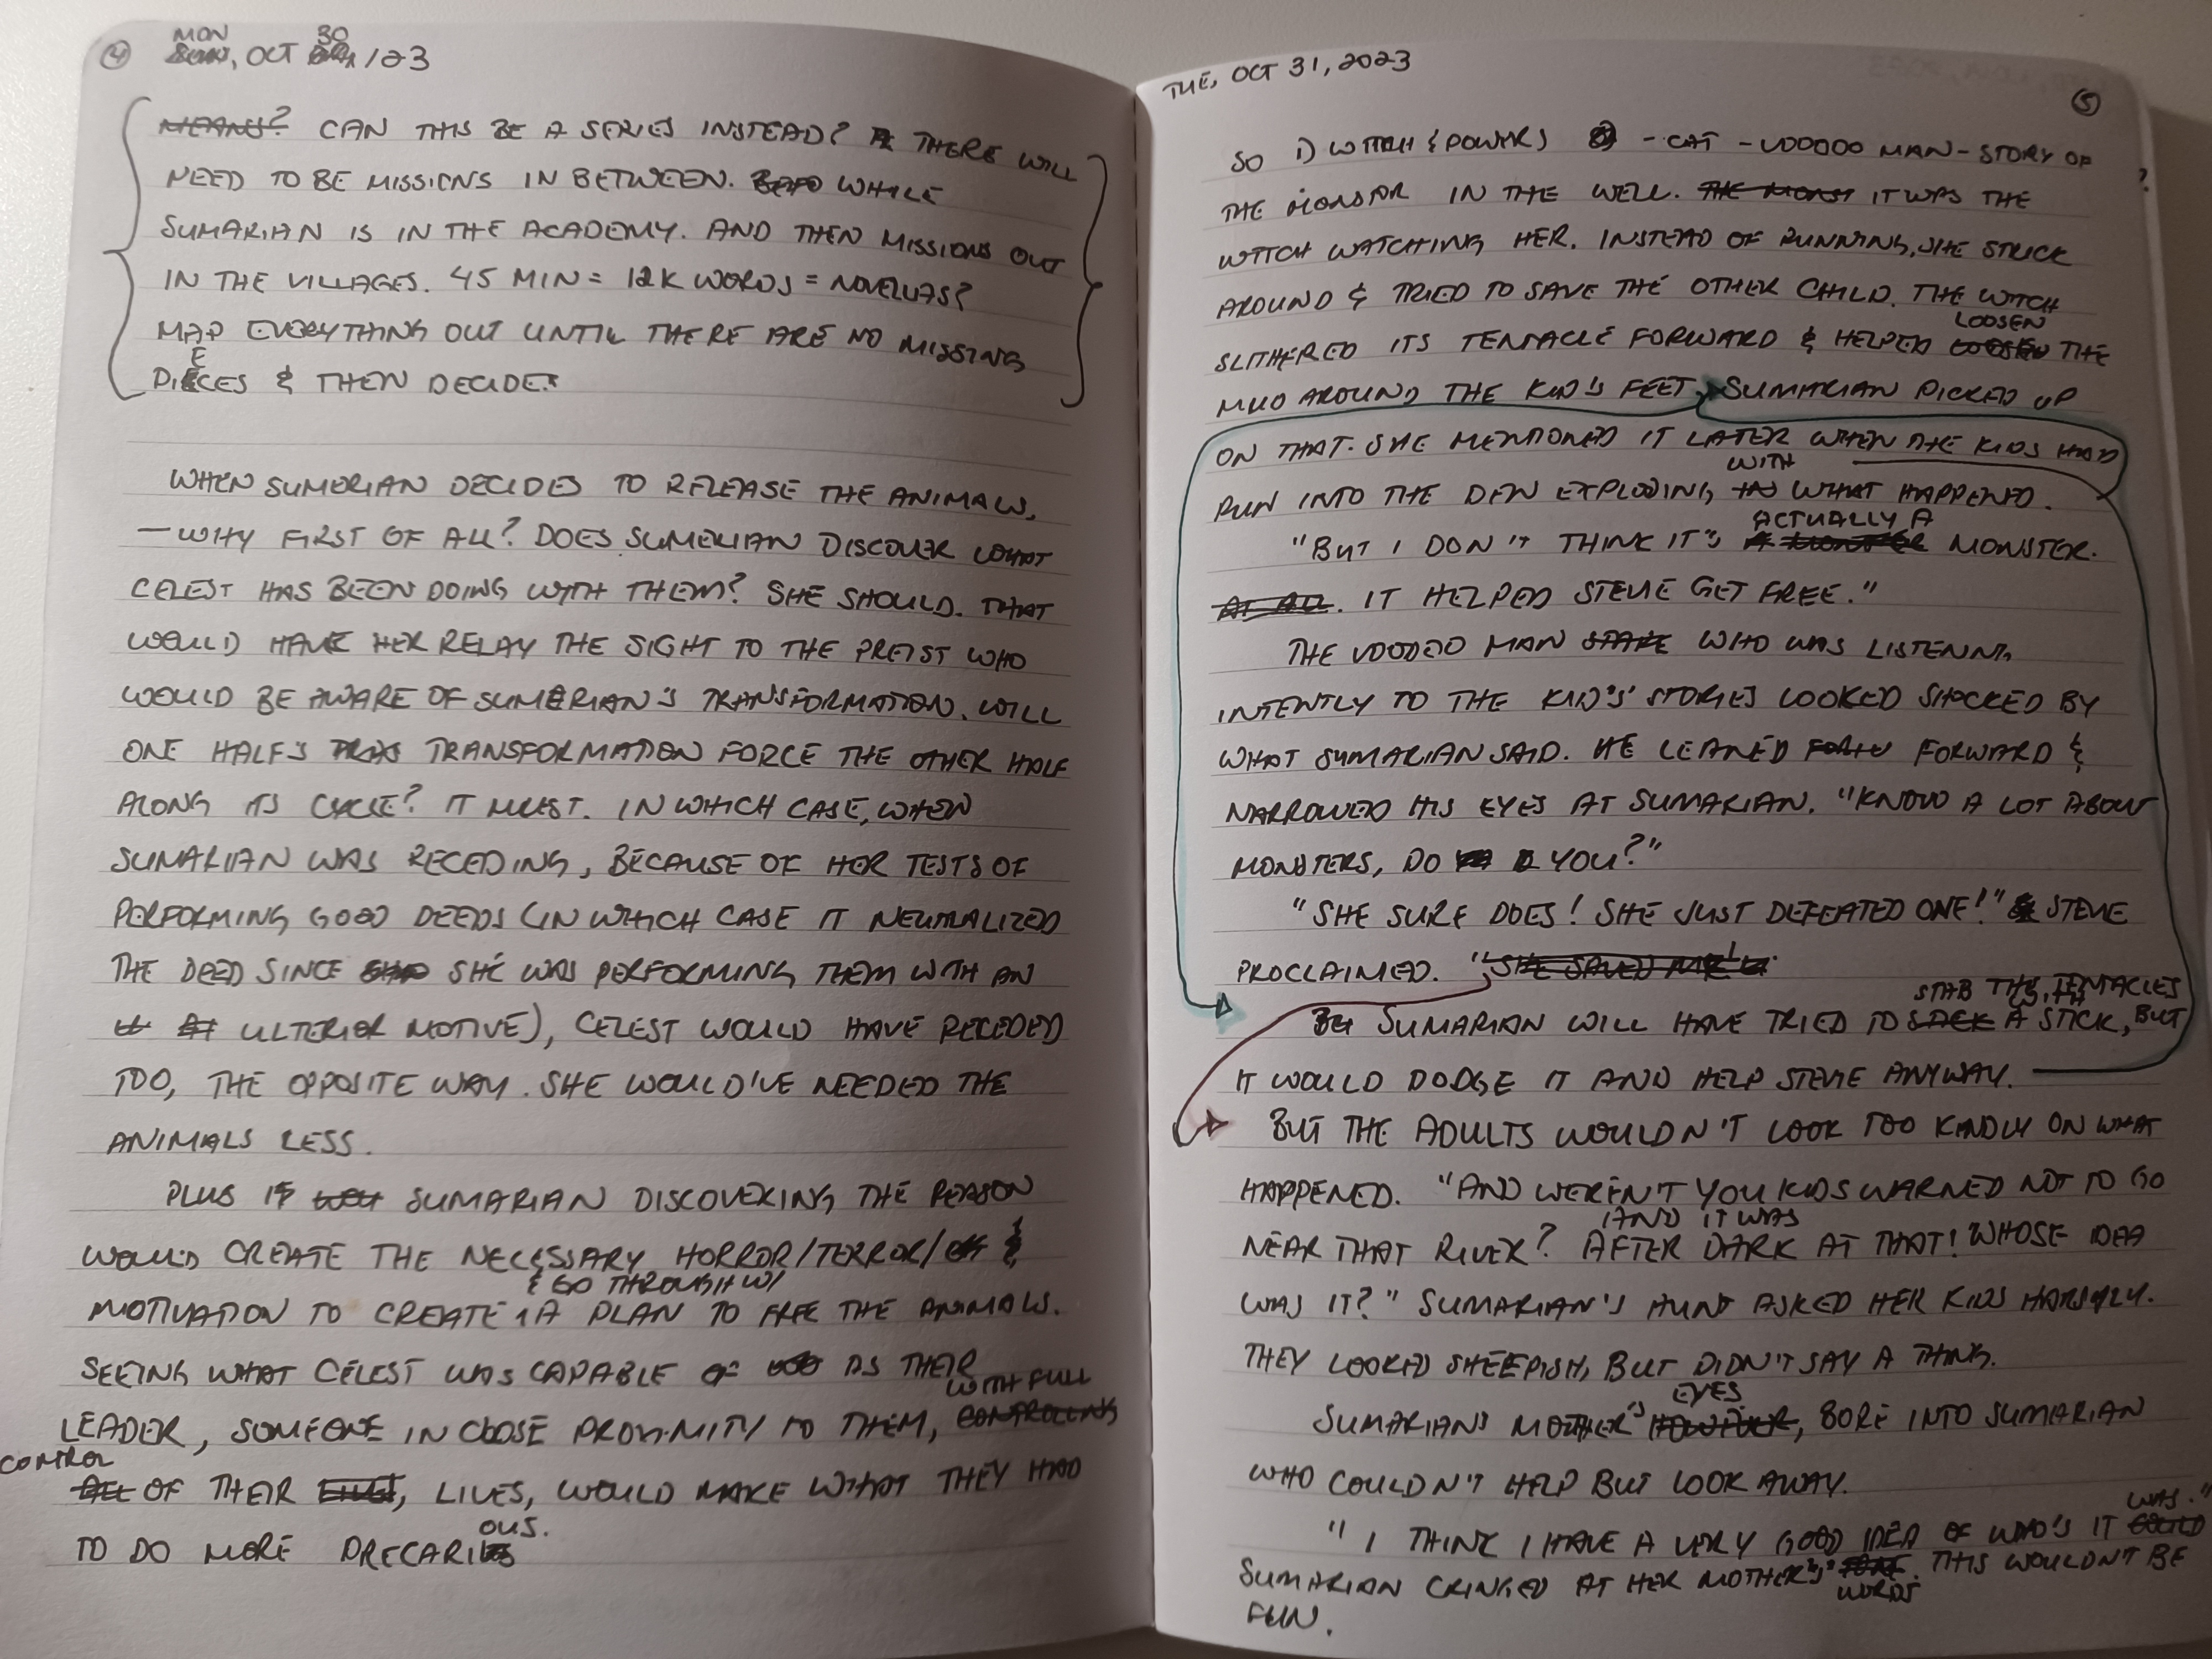 ④ MON
SUN, OCT 30 /23
MEANS? CAN THIS BE A SERIES INSTEAD? THERE WILL
NEED TO BE MISSIONS IN BETWEEN. WHILE
SUMARIAN IS IN THE ACADEMY. AND THEN MISSIONS OUT
IN THE VILLAGES. 45 MIN = 12K WORDS = NOVELLAS?
MAP EVERYTHING OUT UNTIL THERE ARE NO MISSING
PIECES & THEN DECIDE.
WHEN SUMERIAN DECIDES TO RELEASE THE ANIMALS,
— WHY FIRST OF ALL? DOES SUMERIAN DISCOVER WHAT
CELEST HAS BEEN DOING WITH THEM? SHE SHOULD. THAT
WOULD HAVE HER RELAY THE SIGHT TO THE PREIST WHO
WOULD BE AWARE OF SUMERIAN'S TRANSFORMATION. WILL
ONE HALF'S TRANSFORMATION FORCE THE OTHER HALF
ALONG ITS CYCLE? IT MUST. IN WHICH CASE, WHEN
SUMARIAN WAS RECEDING, BECAUSE OF HER TESTS OF
PERFORMING GOOD DEEDS (IN WHICH CASE IT NEUTRALIZED
THE DEED SINCE SHE WAS PERFORMING THEM WITH AN
ULTERIOR MOTIVE), CELEST WOULD HAVE RECEDED
TOO, THE OPPOSITE WAY. SHE WOULD'VE NEEDED THE
ANIMALS LESS.
PLUS IF SUMARIAN DISCOVERING THE REASON
WOULD CREATE THE NECESSARY HORROR/TERROR/ &
& GO THROUGH W/
MOTIVATION TO CREATE A PLAN TO FREE THE ANIMALS.
SEEING WHAT CELEST WAS CAPABLE OF AS THEIR
WITH FULL
LEADER, SOMEONE IN CLOSE PROXIMITY TO THEM, CONTROLLING
CONTROL
ALL OF THEIR LIVES, LIVES, WOULD MAKE WHAT THEY HAD
TO DO MORE PRECARIOUS.
TUE, OCT 31, 2023
⑤
SO 1) WITCH (POWER) - CAT - VOODOO MAN - STORY OF
THE MONSTOR IN THE WELL. THE MONST IT WAS THE
WITCH WATCHING HER. INSTEAD OF RUNNING, SHE STRICK
AROUND & TRIED TO SAVE THE OTHER CHILD. THE WITCH
LOOSEN
SLITHERED ITS TENTACLE FORWARD & HELPED LOOSEN THE
MUD AROUND THE KID'S FEET. SUMARIAN PICKED UP
ON THAT. SHE MENTIONED IT LATER WHEN THE KIDS HAD
WITH
RUN INTO THE DEN EXPLODING IN WHAT HAPPENED.
ACTUALLY A
"BUT I DON'T THINK IT'S A MONSTER MONSTER.
AT ALL. IT HELPED STEVIE GET FREE."
THE VOODOO MAN WHO WAS LISTENING
INTENTLY TO THE KID'S' STORIES LOOKED SHOCKED BY
WHAT SUMARIAN SAID. HE LEANED FORWARD &
NARROWED HIS EYES AT SUMARIAN. "KNOW A LOT ABOUT
MONSTERS, DO YOU?"
"SHE SURE DOES! SHE JUST DEFEATED ONE!" STEVIE
PROCLAIMED. "SHE SAVED ME!"
STAB THE TENTACLES
WITH
SUMARIAN WILL HAVE TRIED TO A STICK, BUT
IT WOULD DODGE IT AND HELP STEVIE ANYWAY.
BUT THE ADULTS WOULDN'T LOOK TOO KINDLY ON WHAT
HAPPENED. "AND WEREN'T YOU KIDS WARNED NOT TO GO
(AND IT WAS
NEAR THAT RIVER? AFTER DARK AT THAT! WHOSE IDEA
WAS IT?" SUMARIAN'S AUNT ASKED HER KIDS HARSHLY.
THEY LOOKED SHEEPISH, BUT DIDN'T SAY A THING.
EYES
SUMARIAN'S MOTHER'S HOWEVER, BORE INTO SUMARIAN
WHO COULDN'T HELP BUT LOOK AWAY.
WAS."
"I THINK I HAVE A VERY GOOD IDEA OF WHO'S IT COULD
SUMARIAN CRINGED AT HER MOTHER'S TONE. THIS WOULDN'T BE
WORDS
FUN.